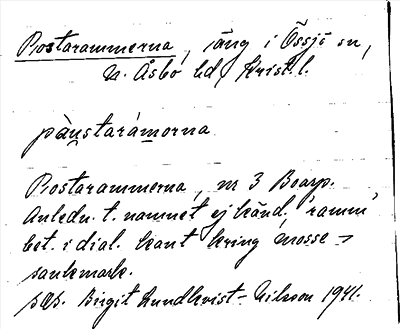 Rostarammerna, äng i Össjö sn,
N. Åsbo hd, Krist. l.
pàu̯starámorna
Rostarammerna, nr 3 Boarp.
Anledn. t. namnet ej känd, 'ramm'
bet. i dial. kant kring mosse
sankmark.
Birgit Lundkvist-Nilsson 1941.